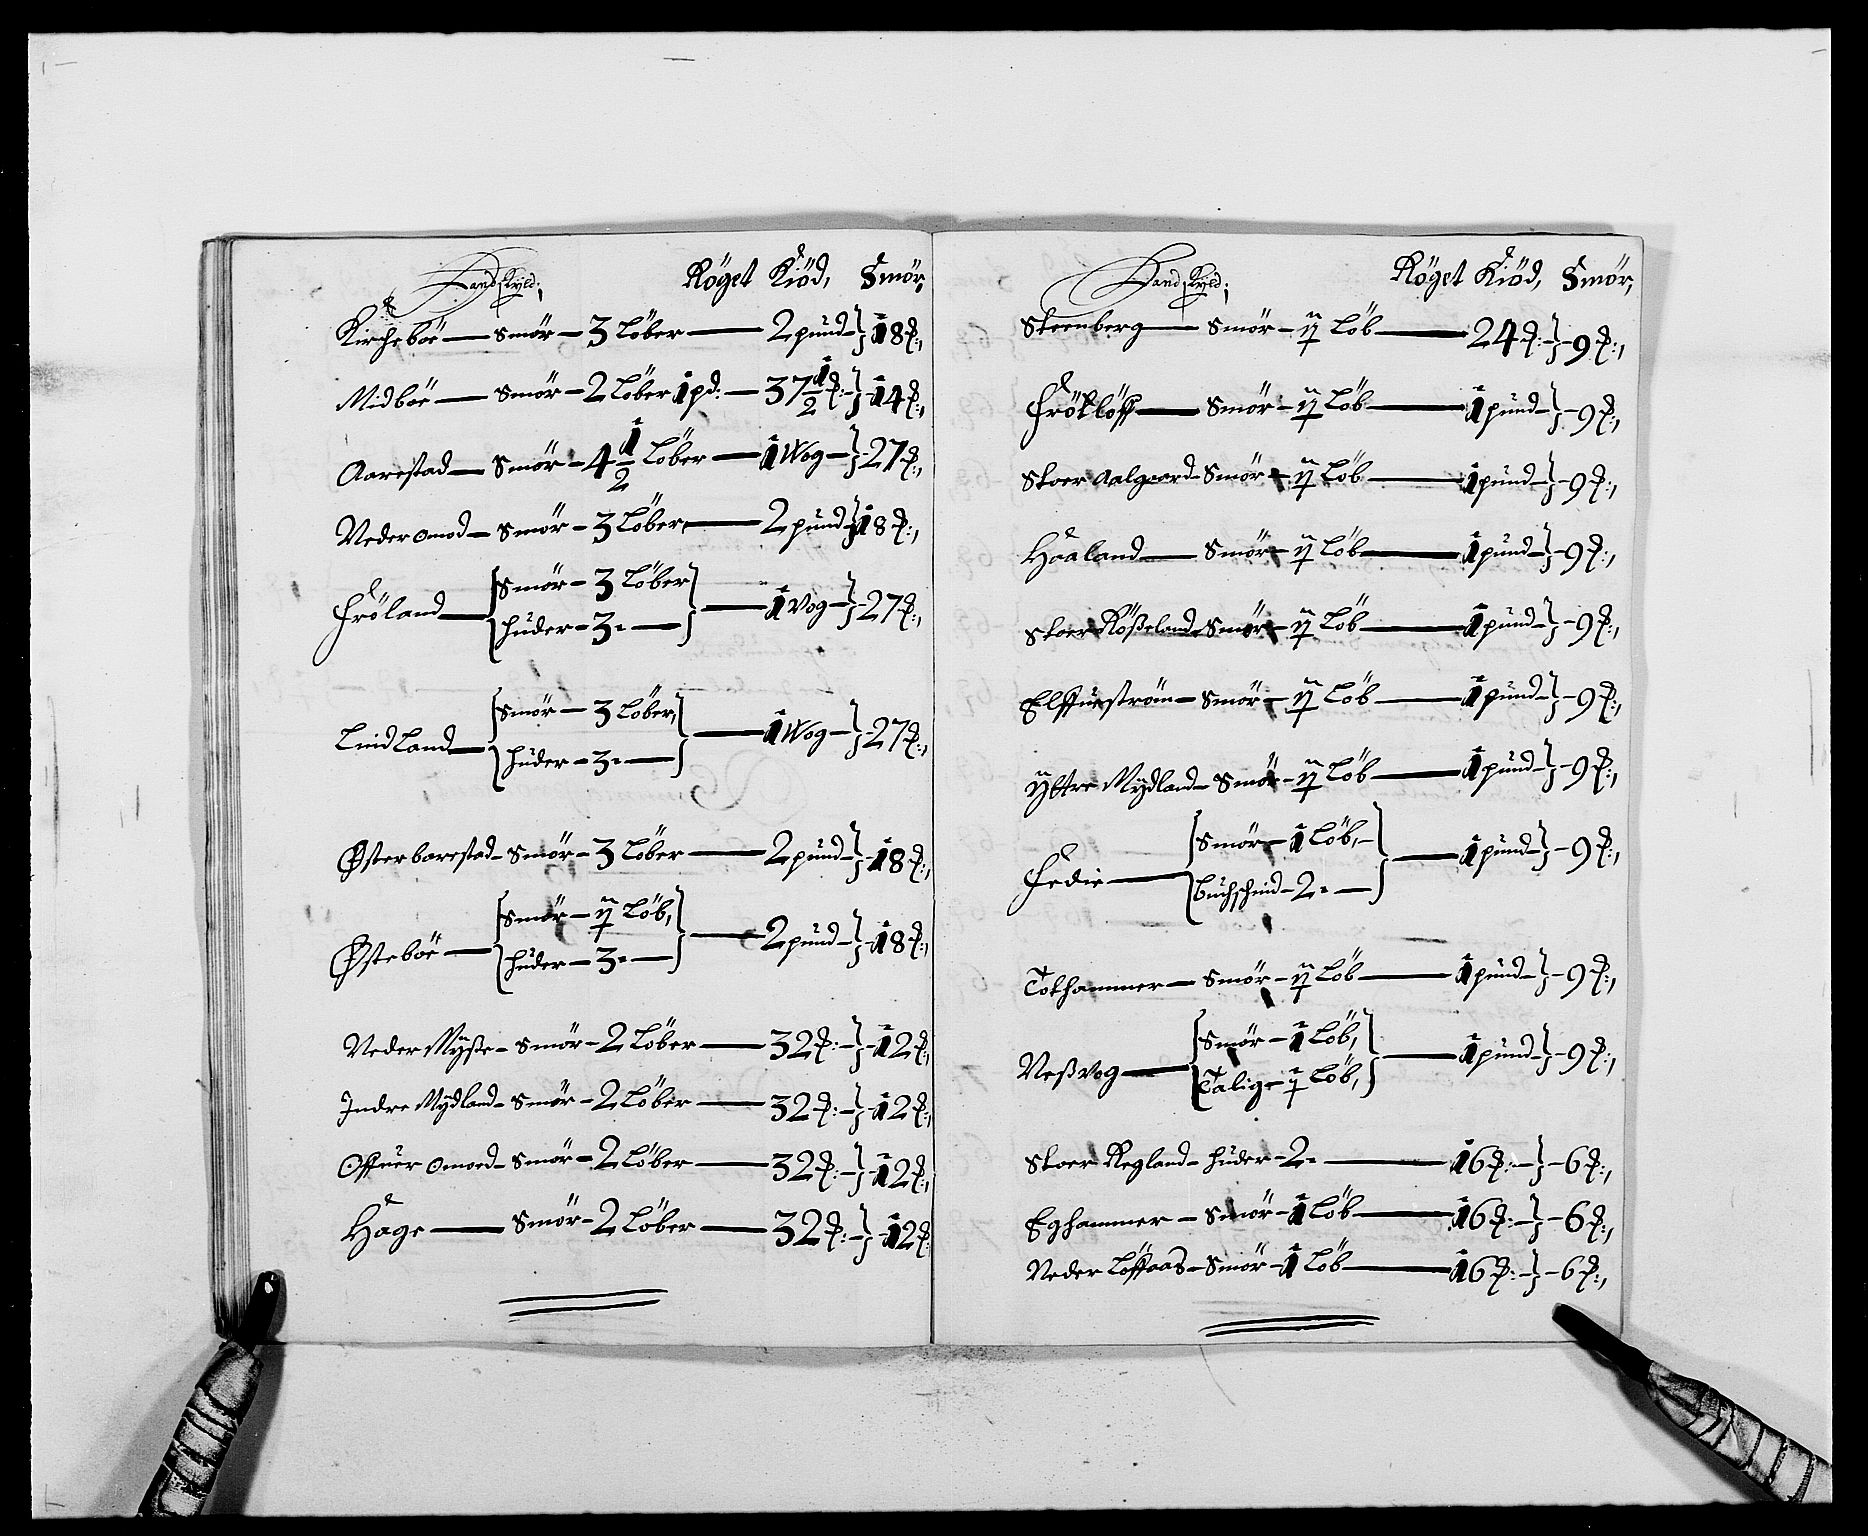 Landskyld; Röget Kiöd, Smör,
Kircheböe — Smör — 3 Löber — 2 pund — } 18 ℔:,
Midböe — Smör — 2 Löber 1 pd: — 37 1/2 ℔: — } 14 ℔:,
Aarestad — Smör — 4 1/2 Löber — 1 Wog — } 27 ℔:,
Neder Omod — Smör — 3 Löber, — 2 pund } 18 ℔:,
Fröland — { Smör — 3 Löber
huder — 3 - — } — 1 Vog — } 27 ℔:,
Lindland — { Smör — 3 Löber,
huder — 3 - — } — 1 Wog — } 27 ℔:,
Østerbarestad — Smör — 3 Löber — 2 pund — } 18 ℔:,
Østeböe — { Smör — ij Löb,
huder — 3 - — } — 2 pund — } 18 ℔:,
Neder Myße — Smör — 2 Löber — 32 ℔: — } 12 ℔:,
Indre Mydland — Smör — 2 Löber — 32 ℔: — } 12 ℔:,
Offuer Omoed — Smör — 2 Löber — 32 ℔: — } 12 ℔:,
Håge — Smör — 2 Löber — 32 ℔: — } 12 ℔:
Landskyld; Röget Kiöd, Smör,
Steenberg — Smör — ij Löb — 24 ℔: — } 9 ℔:,
Frötlöff — Smör — ij Löb — 1 pund — } 9 ℔:,
Stoer Aalgaard — Smör — ij Löb — 1 pund — } 9 ℔:,
Haaland — Smör — ij Löb — 1 pund — } 9 ℔:,
Stoer Rößeland — Smör — ij Löb — 1 pund — } 9 ℔:,
Elffueström — Smör — ij Löb — 1 pund — } 9 ℔:,
Ÿttre Mydland — Smör — ij Löb — 1 pund — } 9 ℔:,
Fedie — { Smör — 1 Löb, —
buchschind — 2 - — } — 1 pund — } 9 ℔:,
Tothammer — Smör — ij Löb — 1 pund — } 9 ℔:,
Neßvog — { Smör — 1 Löb,
Talig — j Löb, } — 1 pund — } 9 ℔:,
Stoer Regland — huder — 2 - — 16 ℔: — } 6 ℔:,
Eghammer — Smör — 1 Löb — 16 ℔: — } 6 ℔:,
Neder Löffaas — Smör — 1 Löb — 16 ℔: — } 6 ℔:,